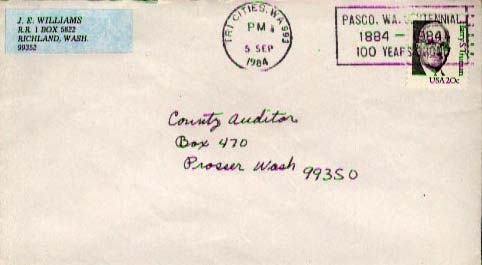 J. E. WILLIAMS
R.R. 1 BOX 5622
RICHLAND, WASH.
99352
TRI CITIES, WA 993
PM
5 SEP
1984
PASCO, WA. CENTENNIAL
1884 - 1984
100 YEARS
Harry S. Truman
USA 20c
County Auditor
Box 470
Prosser Wash 99350